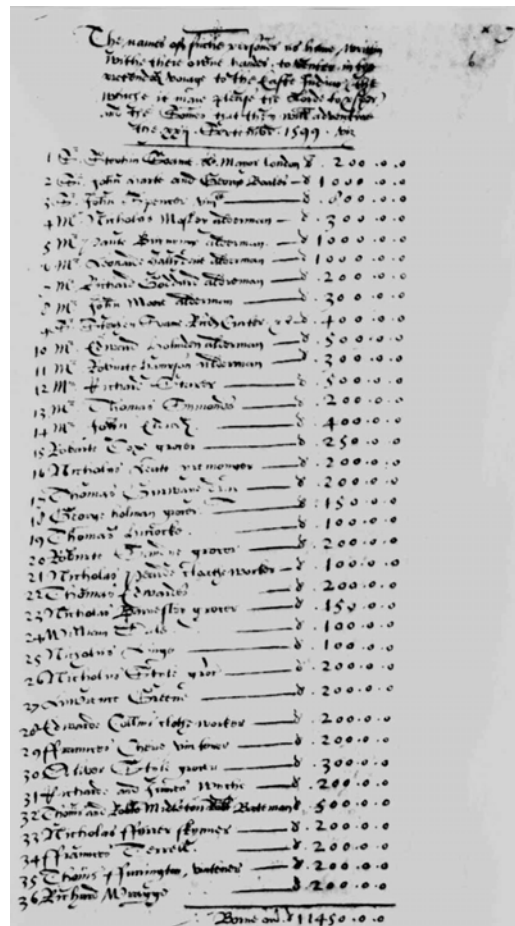 The names of suche persones as have written
withe there owne handes, to venter in the
pretended voiage to the Easte Indias, the
whiche it maie please the Lorde to prosper
and the somes that they will adventure
the xxij September 1599 viz
1 Sr. Stephen Soame Lo. Maior london £ 200.0.0
2 Sr. John Harte and George Bowles £ 1000.0.0
3 Sr. John Spencer £ 800.0.0
4 Mr Nicholas Mosley alderman £ 300.0.0
5 Mr Paule Banning alderman £ 1000.0.0
6 Mr Leonarde Hallydaie alderman £ 1000.0.0
7 Mr Richard Goddard alderman £ 200.0.0
8 Mr John Moore alderman £ 300.0.0
9 Sr. Stephen Soame £ 400.0.0
10 Mr Edward Holmden alderman £ 500.0.0
11 Mr Robarte Hampson alderman £ 300.0.0
12 Mr Richard Staper £ 500.0.0
13 Mr Thomas Simondes £ 200.0.0
14 Mr John £ 400.0.0
15 Robarte Coxe grocer £ 250.0.0
16 Nicholas Leate iremonger £ 200.0.0
17 Thomas £ 200.0.0
18 George holman grocer £ 150.0.0
19 Thomas £ 100.0.0
20 Robarte grocer £ 200.0.0
21 Nicholas Pearde clotheworker £ 100.0.0
22 Thomas Edwardes £ 200.0.0
23 Nicholas Barnesley grocer £ 150.0.0
24 William Dale £ 100.0.0
25 Nicholas Linge £ 100.0.0
26 Nicholas Style grocer £ 200.0.0
27 Lawrance Greene £ 200.0.0
28 Edwarde Collins clothe worker £ 200.0.0
29 ffrauncis Cherie vintener £ 200.0.0
30 Oliver Style grocer £ 300.0.0
31 Richarde and James Wyche £ 200.0.0
32 Thomas and Robt Midleton and Bateman £ 500.0.0
33 Nicholas fferrer skynner £ 200.0.0
34 ffrauncis Terrell £ 200.0.0
35 Thomas ffarrington, vintener £ 200.0.0
36 Richard Wragge £ 200.0.0
£ 11450.0.0